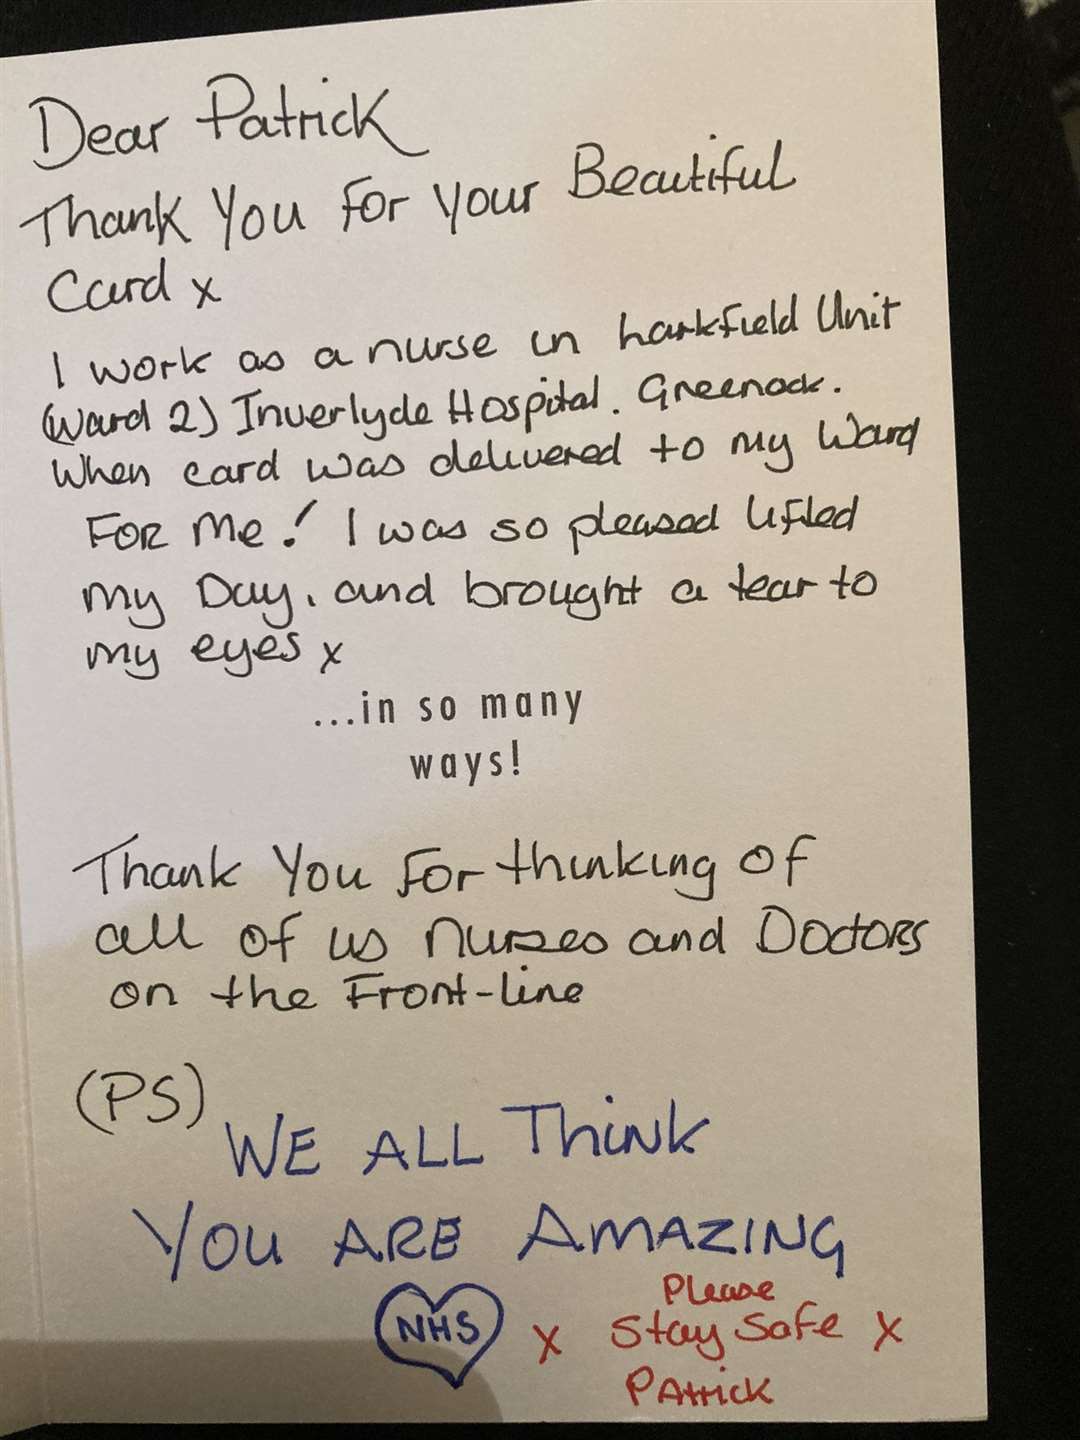 Dear Patrick
Thank You For Your Beautiful
Card x
I work as a nurse in Larkfield Unit
(Ward 2) Inverlyde Hospital. Greenock.
When card was delivered to my Ward
For Me! I was so pleased Lifted
my Day, and brought a tear to
my eyes x
...in so many
ways!
Thank You For thinking of
all of us nurses and Doctors
on the Front-line
(PS)
WE ALL Think
You ARE AMAZING
Please
NHS x Stay Safe x
PAtrick